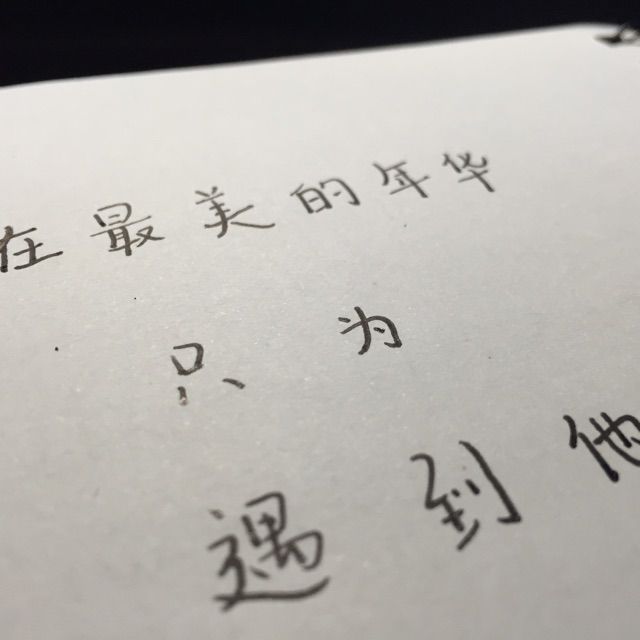 在最美的年华
只为
遇到他